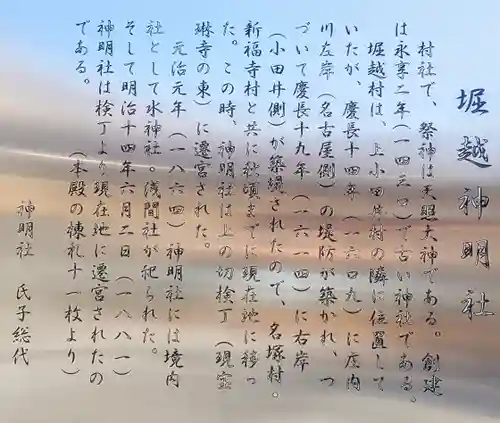 堀越神明社
村社で、祭神は天照大神である。創建
は永享二年(一四三〇)で古い神社である。
堀越村は、上小田井村の隣に位置して
いたが、慶長十四年(一六〇九)に庄内
川左岸(名古屋側)の堤防が築かれ、つ
づいて慶長十九年(一六一四)に右岸
(小田井側)が築堤されたので、名塚村。
新福寺村と共に秋頃までに現在地に移っ
た。この時、神明社は上の切検丁(現宝
琳寺の東)に遷宮された。
元治元年(一八六四)神明社には境内
社として水神社。浅間社が祀られた。
そして明治十四年六月二日(一八八一)
神明社は検丁より現在地に遷宮されたの
である。
(本殿の棟札十一枚より)
神明社 氏子総代